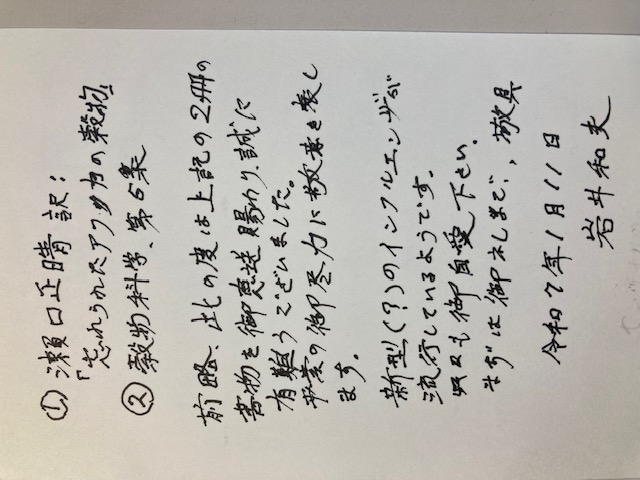 ① 瀬口正晴 訳：
『忘れられたアフリカの穀物』
② 穀物科学、第6集
前略、此の度は上記の2冊の
書物を御恵送賜わり、誠に
有難うございました。
御尽力に敬意を表し
ます。
新型(？)のインフルエンザが
流行しているようです。
御自愛下さい。
まずは御礼まで、敬具
令和7年1月11日
岩井和夫